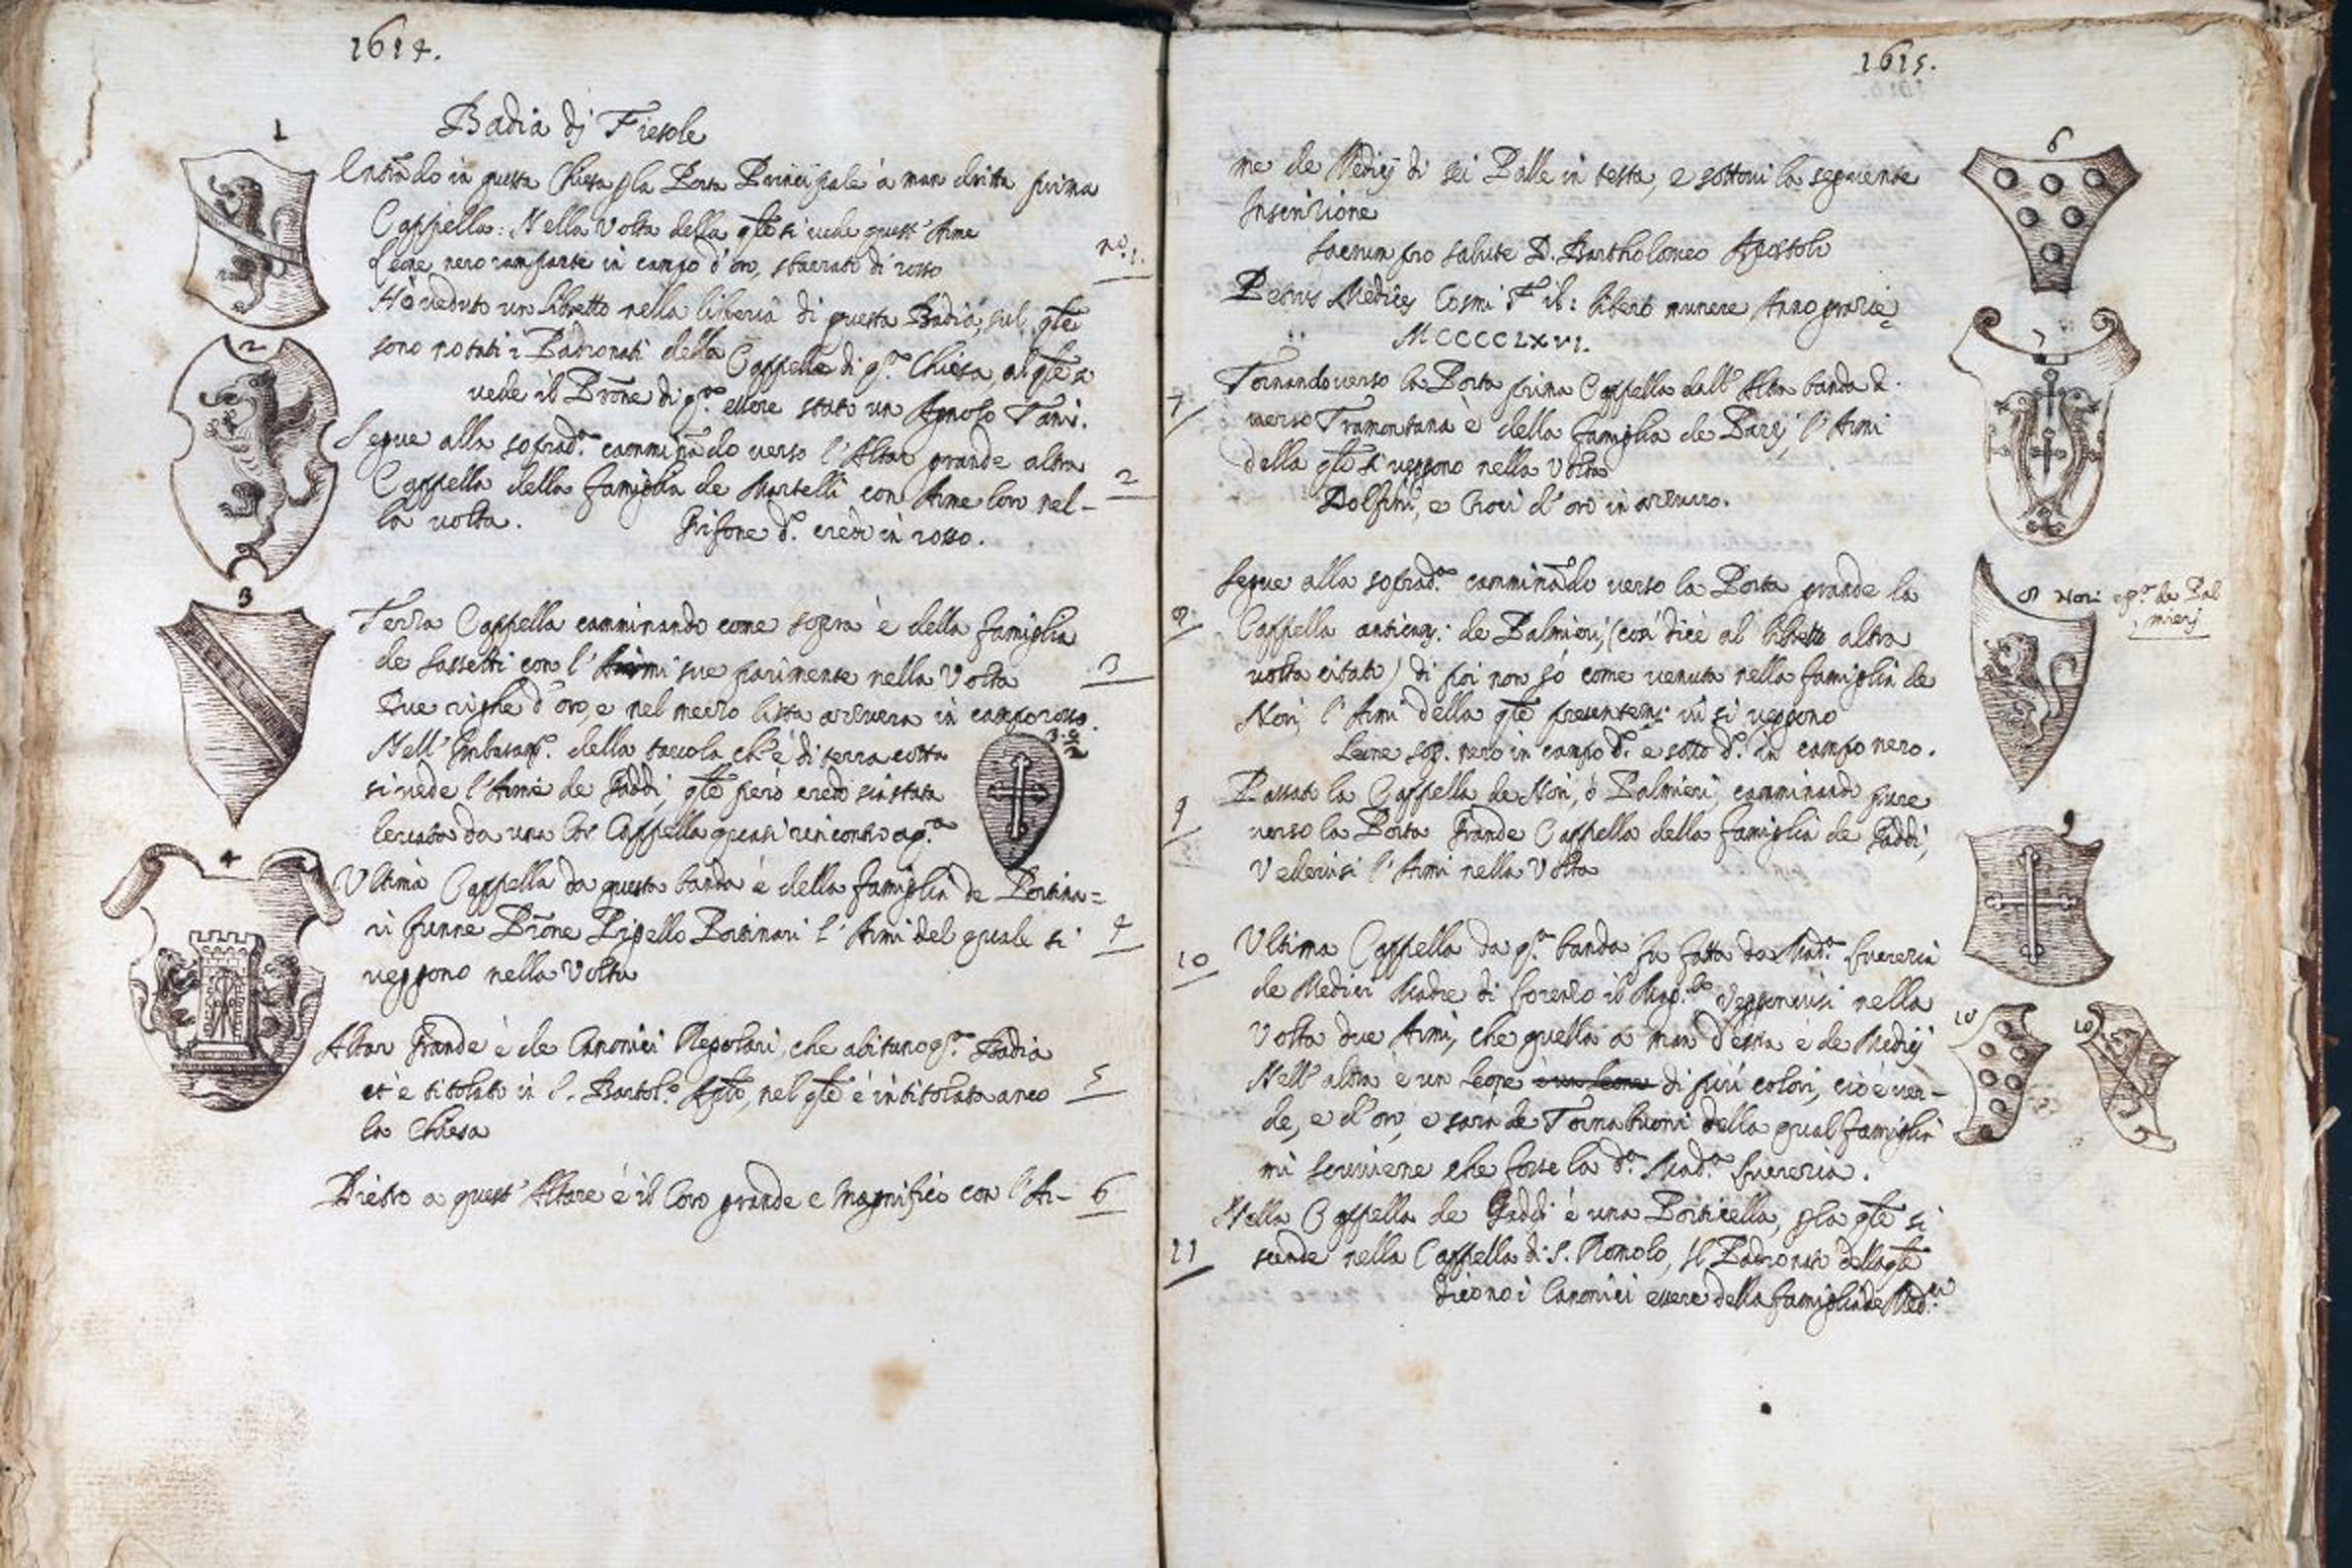 1614.
Badia di Fiesole
1
Entrando in questa Chiesa p la Porta Principale à man dritta prima
Cappella: Nella Volta della qle si vede quest'Arme
Leone nero rampante in campo d'oro, sbarrato di rosso
nº. 1.
Hò veduto un libretto nella libreria di questa Badia, sul qle
sono notati i Padronati della Cappelle di qª. Chiesa, al qle si
vede il Prone di qª. essere stato un Agnolo Tani.
2
Segue alla soprad.ª camminãdo verso l'Altar grande altra
Cappella della famiglia de Martelli con Arme loro nel-
la volta. Grifone d. credo in rosso.
2
3
Terza Cappella camminando come sopra è della famiglia
de Sassetti con l'Armi sue parimente nella Volta
3
Due righe d'oro, e nel mezzo lista azzurra in campo rosso.
Nell' della tavola ch'è di terra cotta
si vede l'Arme de Gaddi, qle però credo sia stata
levata da una lor Cappella quasi rincontro a qª
3. 2
4
Ultima Cappella da questa banda è della famiglia de Portina=
ri funne Prone Pigello Portinari l'Armi del quale si
veggono nella Volta
4
Altar Grande è de Canonici Regolari, che abitano qª. Badia
et è titolato in S. Bartol.º Aplo, nel qle è intitolata anco
la Chiesa
5
Dietro a quest'Altare è il Coro grande e magnifico con l'Ar-
6
1615.
6
me de Medicj di sei Palle in testa, e sottovi la seguente
Inscrizione
Sacrum pro salute D. Bartholomeo Apostolo
Petrus Medices Cosmi Fil: libero munere Anno gratię
MCCCCLXVI.
7
7
Tornando verso la Porta prima Cappella dall'Alta banda d.
verso Tramontana è della famiglia de Pazzj l'Armi
della qle si veggono nella Volta
Dolfini, e Croci d'oro in azzurro.
8 Nori qª. da Pal
mierj
8
Segue alla soprad.ª camminãdo verso la Porta grande la
Cappella anticam: de Palmieri, (così dice al libretto altra
volta citato) di poi non sò come venuta nella famiglia de
Nori, l'Armi della qle presentem: vi si veggono
Leone sop. nero in campo d. e sotto d. in campo nero.
9
9
Passata la Cappella de Nori, ò Palmieri, camminando pure
verso la Porta Grande Cappella della famiglia de Gaddi,
Vedervisi l'Armi nella Volta
10
Ultima Cappella da qª. banda fu fatta da Mad.ª Lucrezia
de Medici Madre di Lorenzo il Mag.co Veggonvisi nella
Volta due Armi, che quella a man destra è de Medicj
10
10
Nell'altra è un Leone è un Leone di più colori, cioè ver-
de, e d'oro, e sarà de Tornabuoni della qual famiglia
mi sovviene che fosse la d.ª Mad.ª Lucrezia.
11
Nella Cappella de Gaddi è una Porticella, p la qle si
scende nella Cappella di S. Romolo, il Padronato della qle
dicono i Canonici essere della famiglia de Med.ci